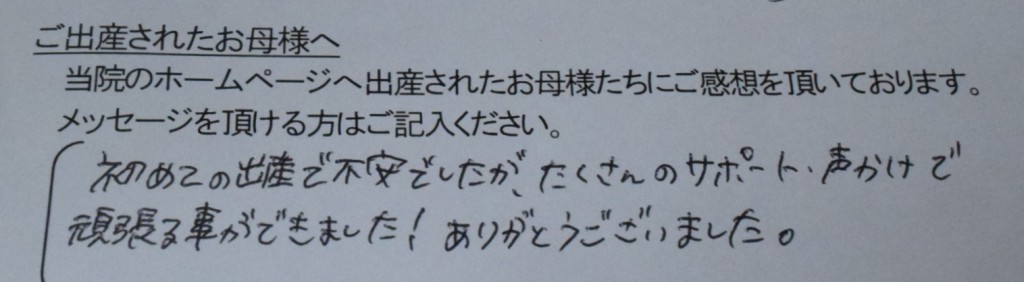 ご出産されたお母様へ
当院のホームページへ出産されたお母様たちにご感想を頂いております。
メッセージを頂ける方はご記入ください。
初めての出産で不安でしたが、たくさんのサポート、声かけで
頑張る事ができました！ありがとうございました。